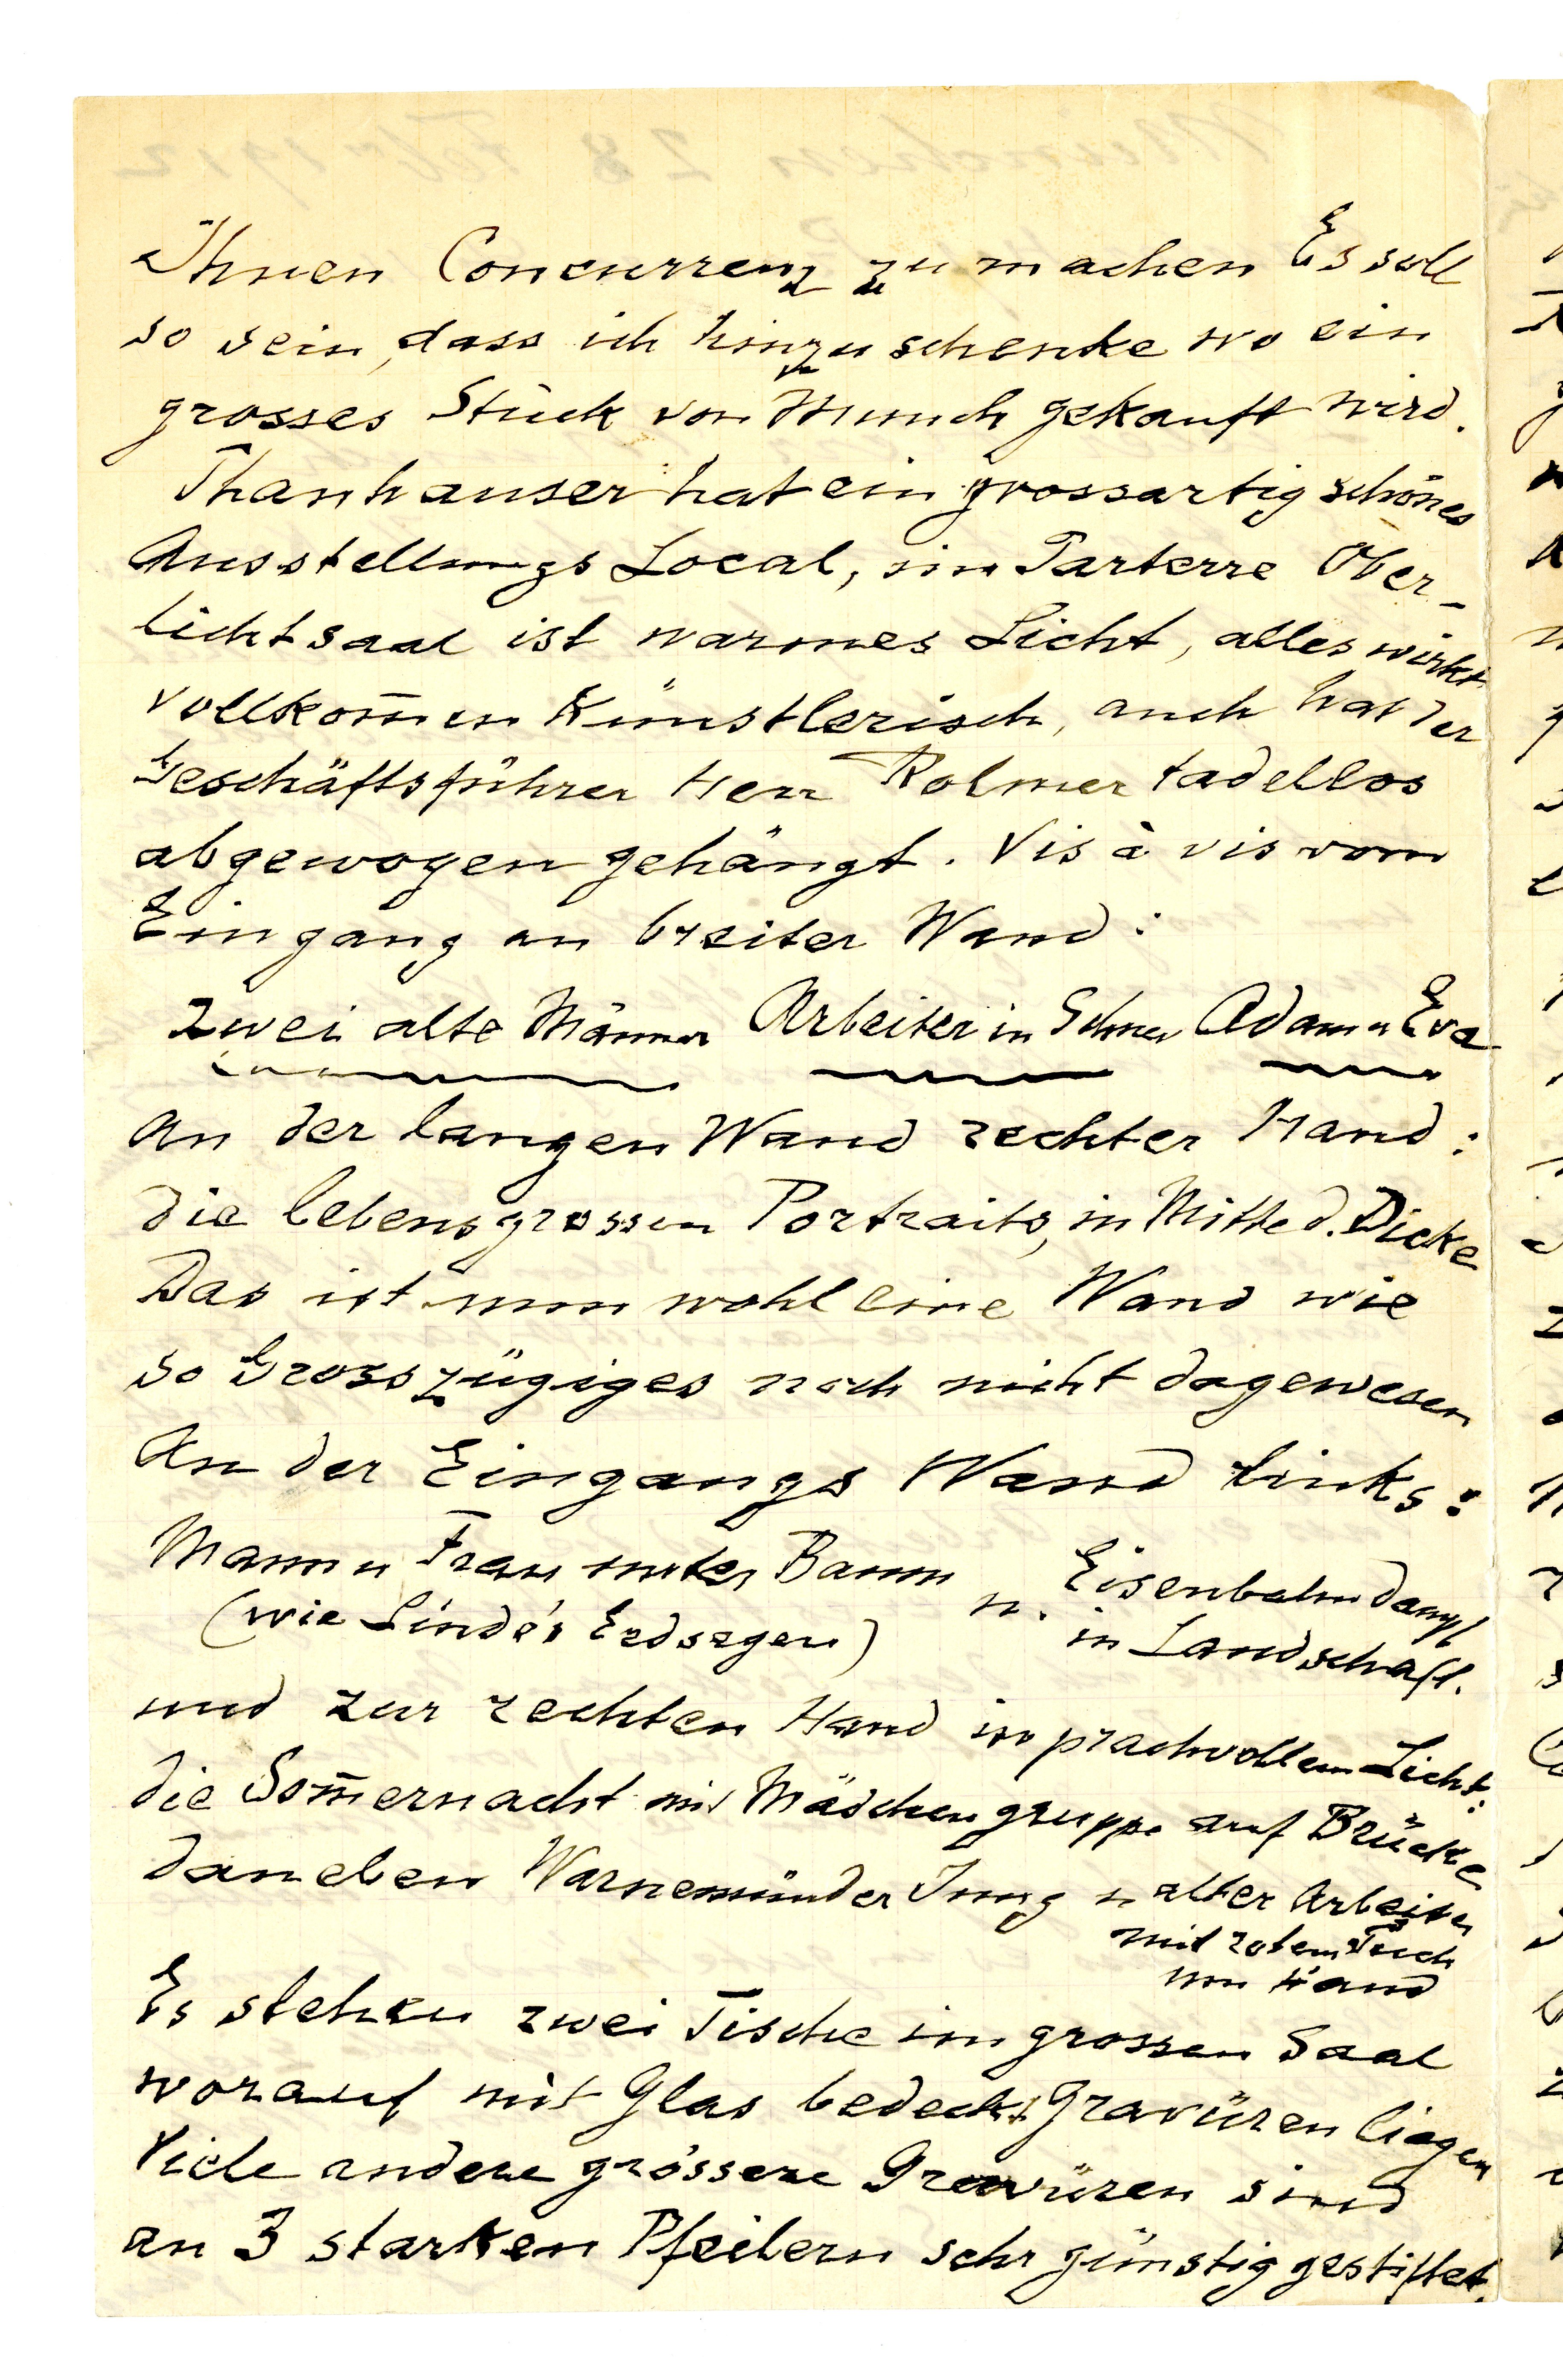 Ihnen Concurrenz zu machen Es soll
so sein, dass ich hinzu schenke wo ein
grosses Stück von Munch gekauft wird.
Thanhauser hat ein grossartig schönes
Ausstellungs Local, im Parterre Ober-
lichtsaal ist warmes Licht, alles wirkt
vollkom̄en Künstlerisch, auch hat der
Geschäftsführer Herr Rolmer tadellos
abgewogen gehängt. Vis à vis vom
Eingang an breiter Wand:
Zwei alte Männer Arbeiter in Schnee Adam u Eva
An der langen Wand rechter Hand:
die lebensgrossen Portraits, in Mitte d. Dicke
Das ist nun wohl eine Wand wie
so Grosszügiges noch nicht dagewesen
An der Eingangs Wand links:
Mann u Frau unter Baum u. Eisenbahndampf
(wie Linde's Erdsegen) in Landschaft.
und zur rechten Hand in prachvollem Licht:
die Som̄ernacht mit Mädchengruppe auf Brücke
daneben Warnemünder Jung u alter Arbeiter
mit rotem Tuch
um Hand
Es stehen zwei Tische im grossen Saal
worauf mit Glas bedeckt Gravüren liegen
Viele andere grössere Gravüren sind
an 3 starken Pfeilern sehr günstig gestiftet.